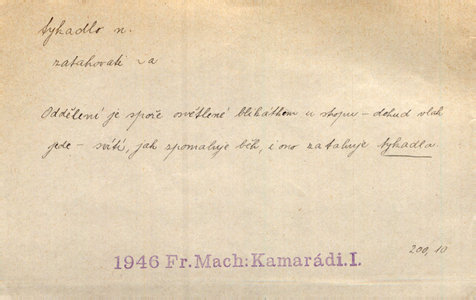 tykadlo n.
zatahovati ~a
Oddělení je spoře osvětlené blikátkem u stropu – dokud vlak
jede – svítí, jak zpomaluje běh, i ono zatahuje tykadla.
200, 10
1946 Fr. Mach: Kamarádi. I.